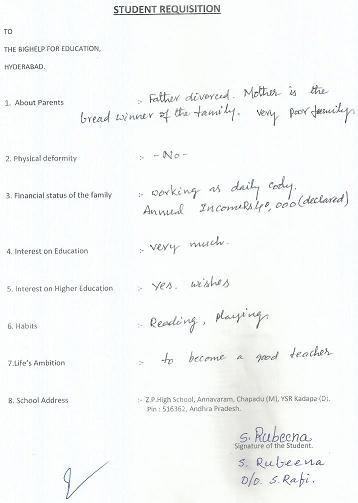 STUDENT REQUISITION
TO
THE BIGHELP FOR EDUCATION,
HYDERABAD.
1. About Parents :- Father divorced. Mother is the
bread winner of the family. very poor family.
2. Physical deformity :- -No-
3. Financial status of the family :- working as daily cooly.
Annual Income Rs 40,000 (declared)
4. Interest on Education :- very much.
5. Interest on Higher Education :- yes. wishes
6. Habits :- Reading, playing.
7.Life's Ambition :- to become a good teacher
8. School Address :- Z.P.High School, Annavaram, Chapadu (M), YSR Kadapa (D).
Pin : 516362, Andhra Pradesh.
S. Rubeena
Signature of the Student.
S. Rubeena
D/o. S. Rafi.